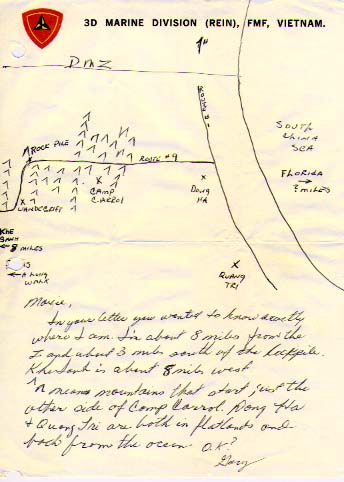 3D MARINE DIVISION (REIN), FMF, VIETNAM.
DMZ
ROCK PILE
ROUTE #9
CAMP CARROL
DONG HA
SOUTH CHINA SEA
FLORIDA
? MILES
VANDEGRIFT
KHE SANH
8 MILES
A LONG WALK
QUANG TRI
In your letter you wanted to know exactly
where I am. I'm about 8 miles from the
Z and about 3 miles south of the Rockpile.
Khe Sanh is about 8 miles west
^ means mountains that start just the
other side of Camp Carrol. Dong Ha
+ Quang Tri are both in flatlands and
back from the ocean O.K?
Gary